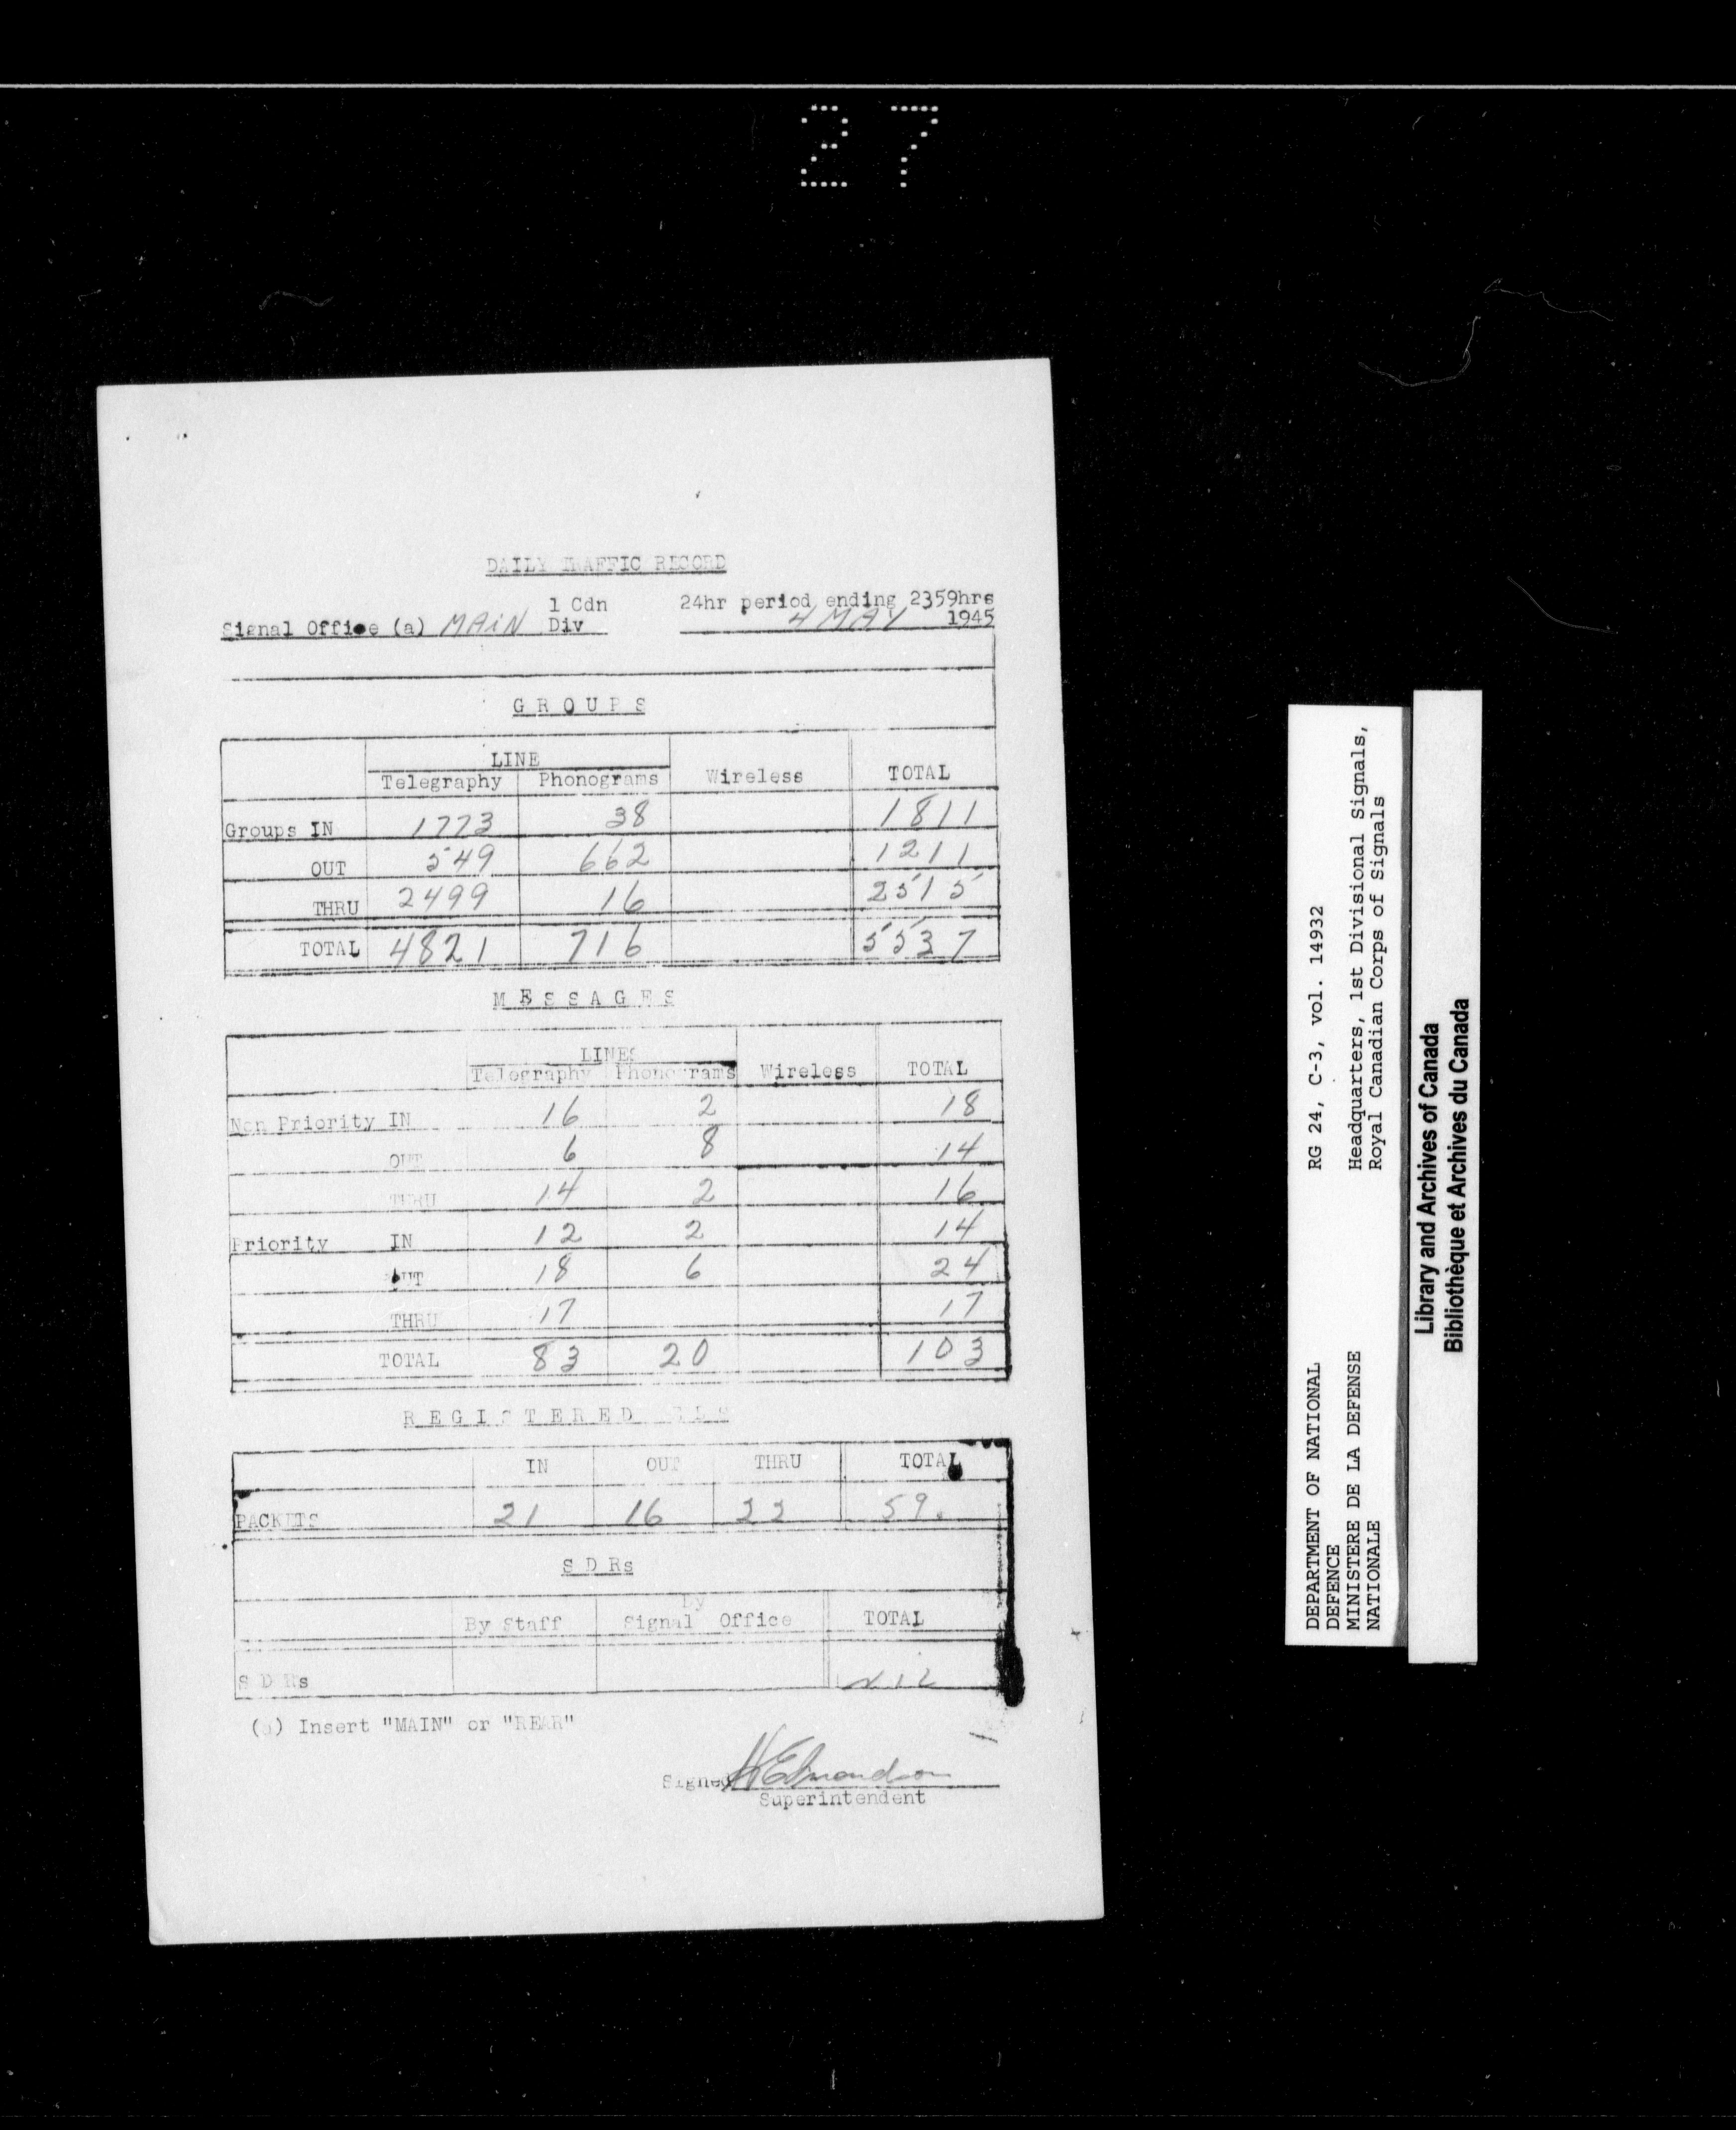 27
DAILY TRAFFIC RECORD
1 Cdn 24hr period ending 2359hrs
Signal Office (a) MAIN Div 4 MAY 1945
GROUPS
LINE
Telegraphy Phonograms Wireless TOTAL
Groups IN 1773 38 1811
OUT 549 662 1211
THRU 2499 16 2515
TOTAL 4821 716 5537
MESSAGES
LINES
Telegraphy Phonograms Wireless TOTAL
Non Priority IN 16 2 18
OUT 6 8 14
THRU 14 2 16
Priority IN 12 2 14
OUT 18 6 24
THRU 17 17
TOTAL 83 20 103
REGISTERED
IN OUT THRU TOTAL
PACKETS 21 16 22 59.
S D Rs
By
By Staff Signal Office TOTAL
S D Rs NIL
(a) Insert "MAIN" or "REAR"
Signed H Edmondson
Superintendent
DEPARTMENT OF NATIONAL RG 24, C-3, vol. 14932
DEFENCE
MINISTERE DE LA DEFENSE Headquarters, 1st Divisional Signals,
NATIONALE Royal Canadian Corps of Signals
Library and Archives of Canada
Bibliothèque et Archives du Canada